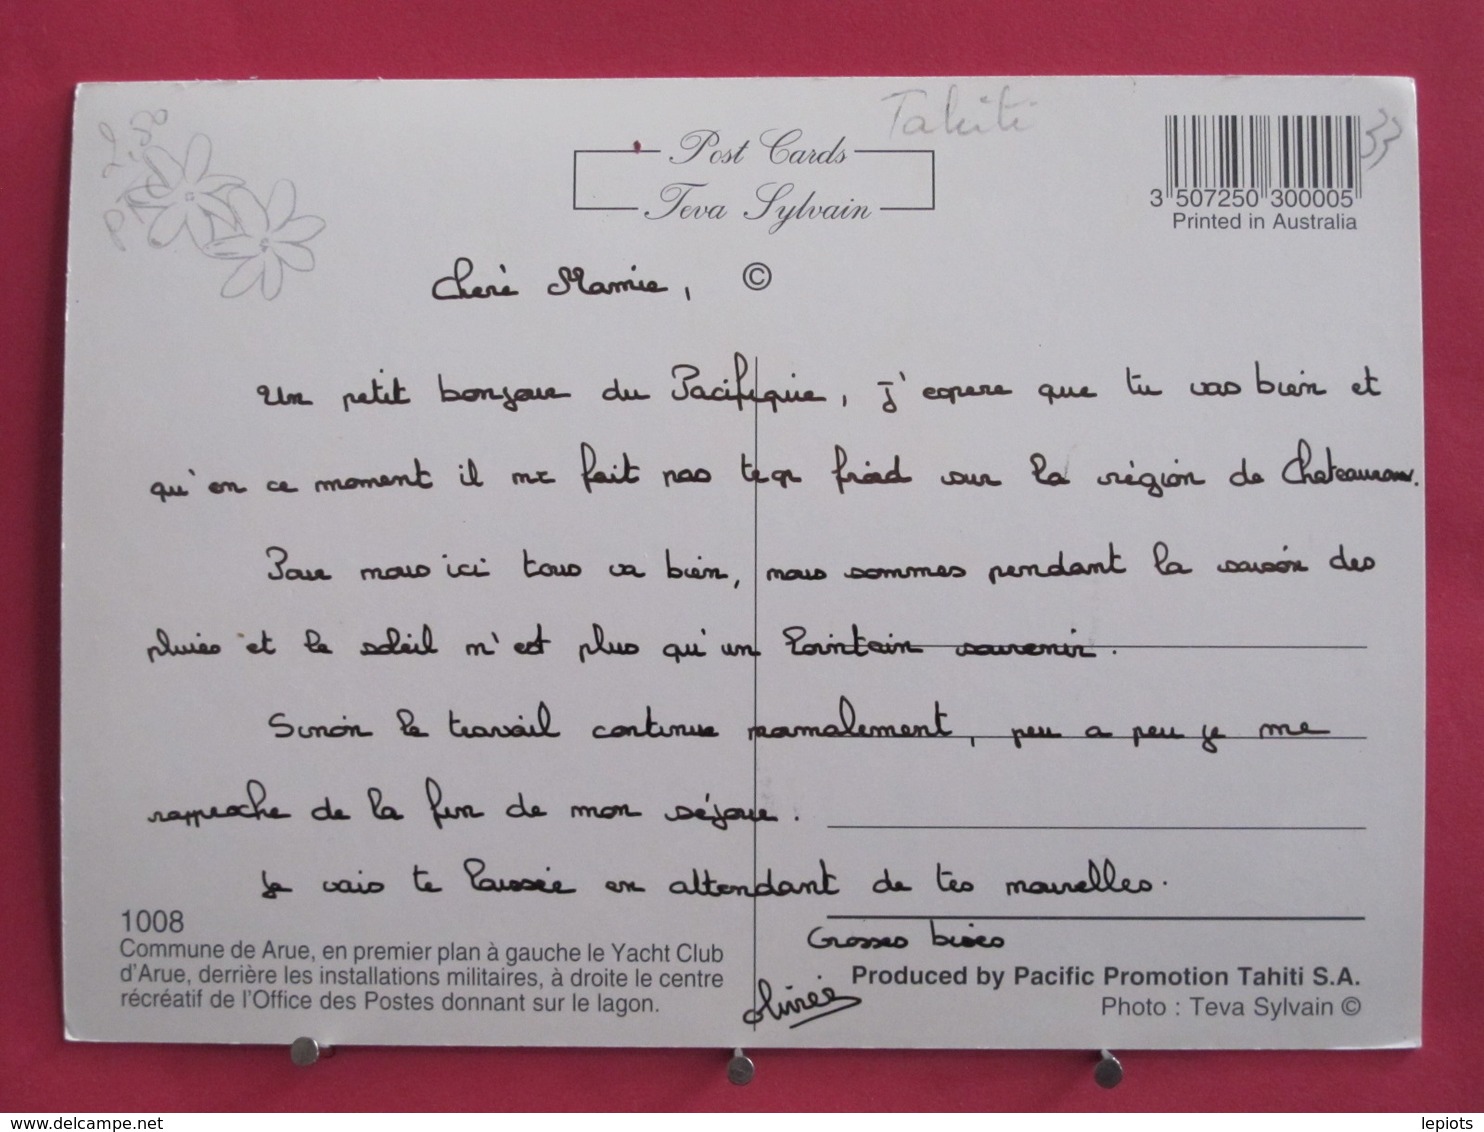 Tahiti
2,50
33
Post Cards
Teva Sylvain
3 507250 300005
Printed in Australia
©
Cheré Mamie,
Un petit bonjour du Pacifique, j'espere que tu vas bien et
qu'en ce moment il ne fait pas trop froid sur la région de Chateauroux.
Pour nous ici tous va bien, nous sommes pendant la saison des
pluies et le soleil n'est plus qu'un lointain souvenir.
Sinon le travail continue normalement, peu a peu je me
rapproche de la fin de mon séjour.
Je vais te laissée en attendant de tes nouvelles.
Grosses bises
Olivier
1008
Commune de Arue, en premier plan à gauche le Yacht Club
d'Arue, derrière les installations militaires, à droite le centre
récréatif de l'Office des Postes donnant sur le lagon.
Produced by Pacific Promotion Tahiti S.A.
Photo : Teva Sylvain ©
www.delcampe.net
lepiots